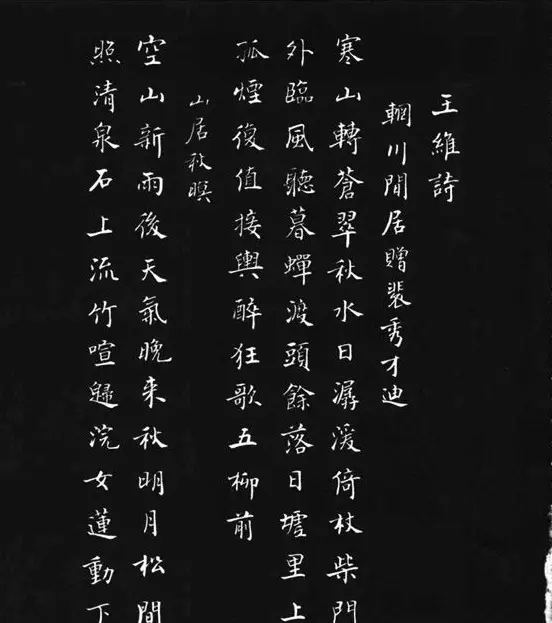 王維詩
輞川閒居贈裴秀才迪
寒山轉蒼翠秋水日潺湲倚杖柴門
外臨風聽暮蟬渡頭餘落日墟里上
孤煙復值接輿醉狂歌五柳前
山居秋暝
空山新雨後天氣晚来秋明月松間
照清泉石上流竹喧歸浣女蓮動下